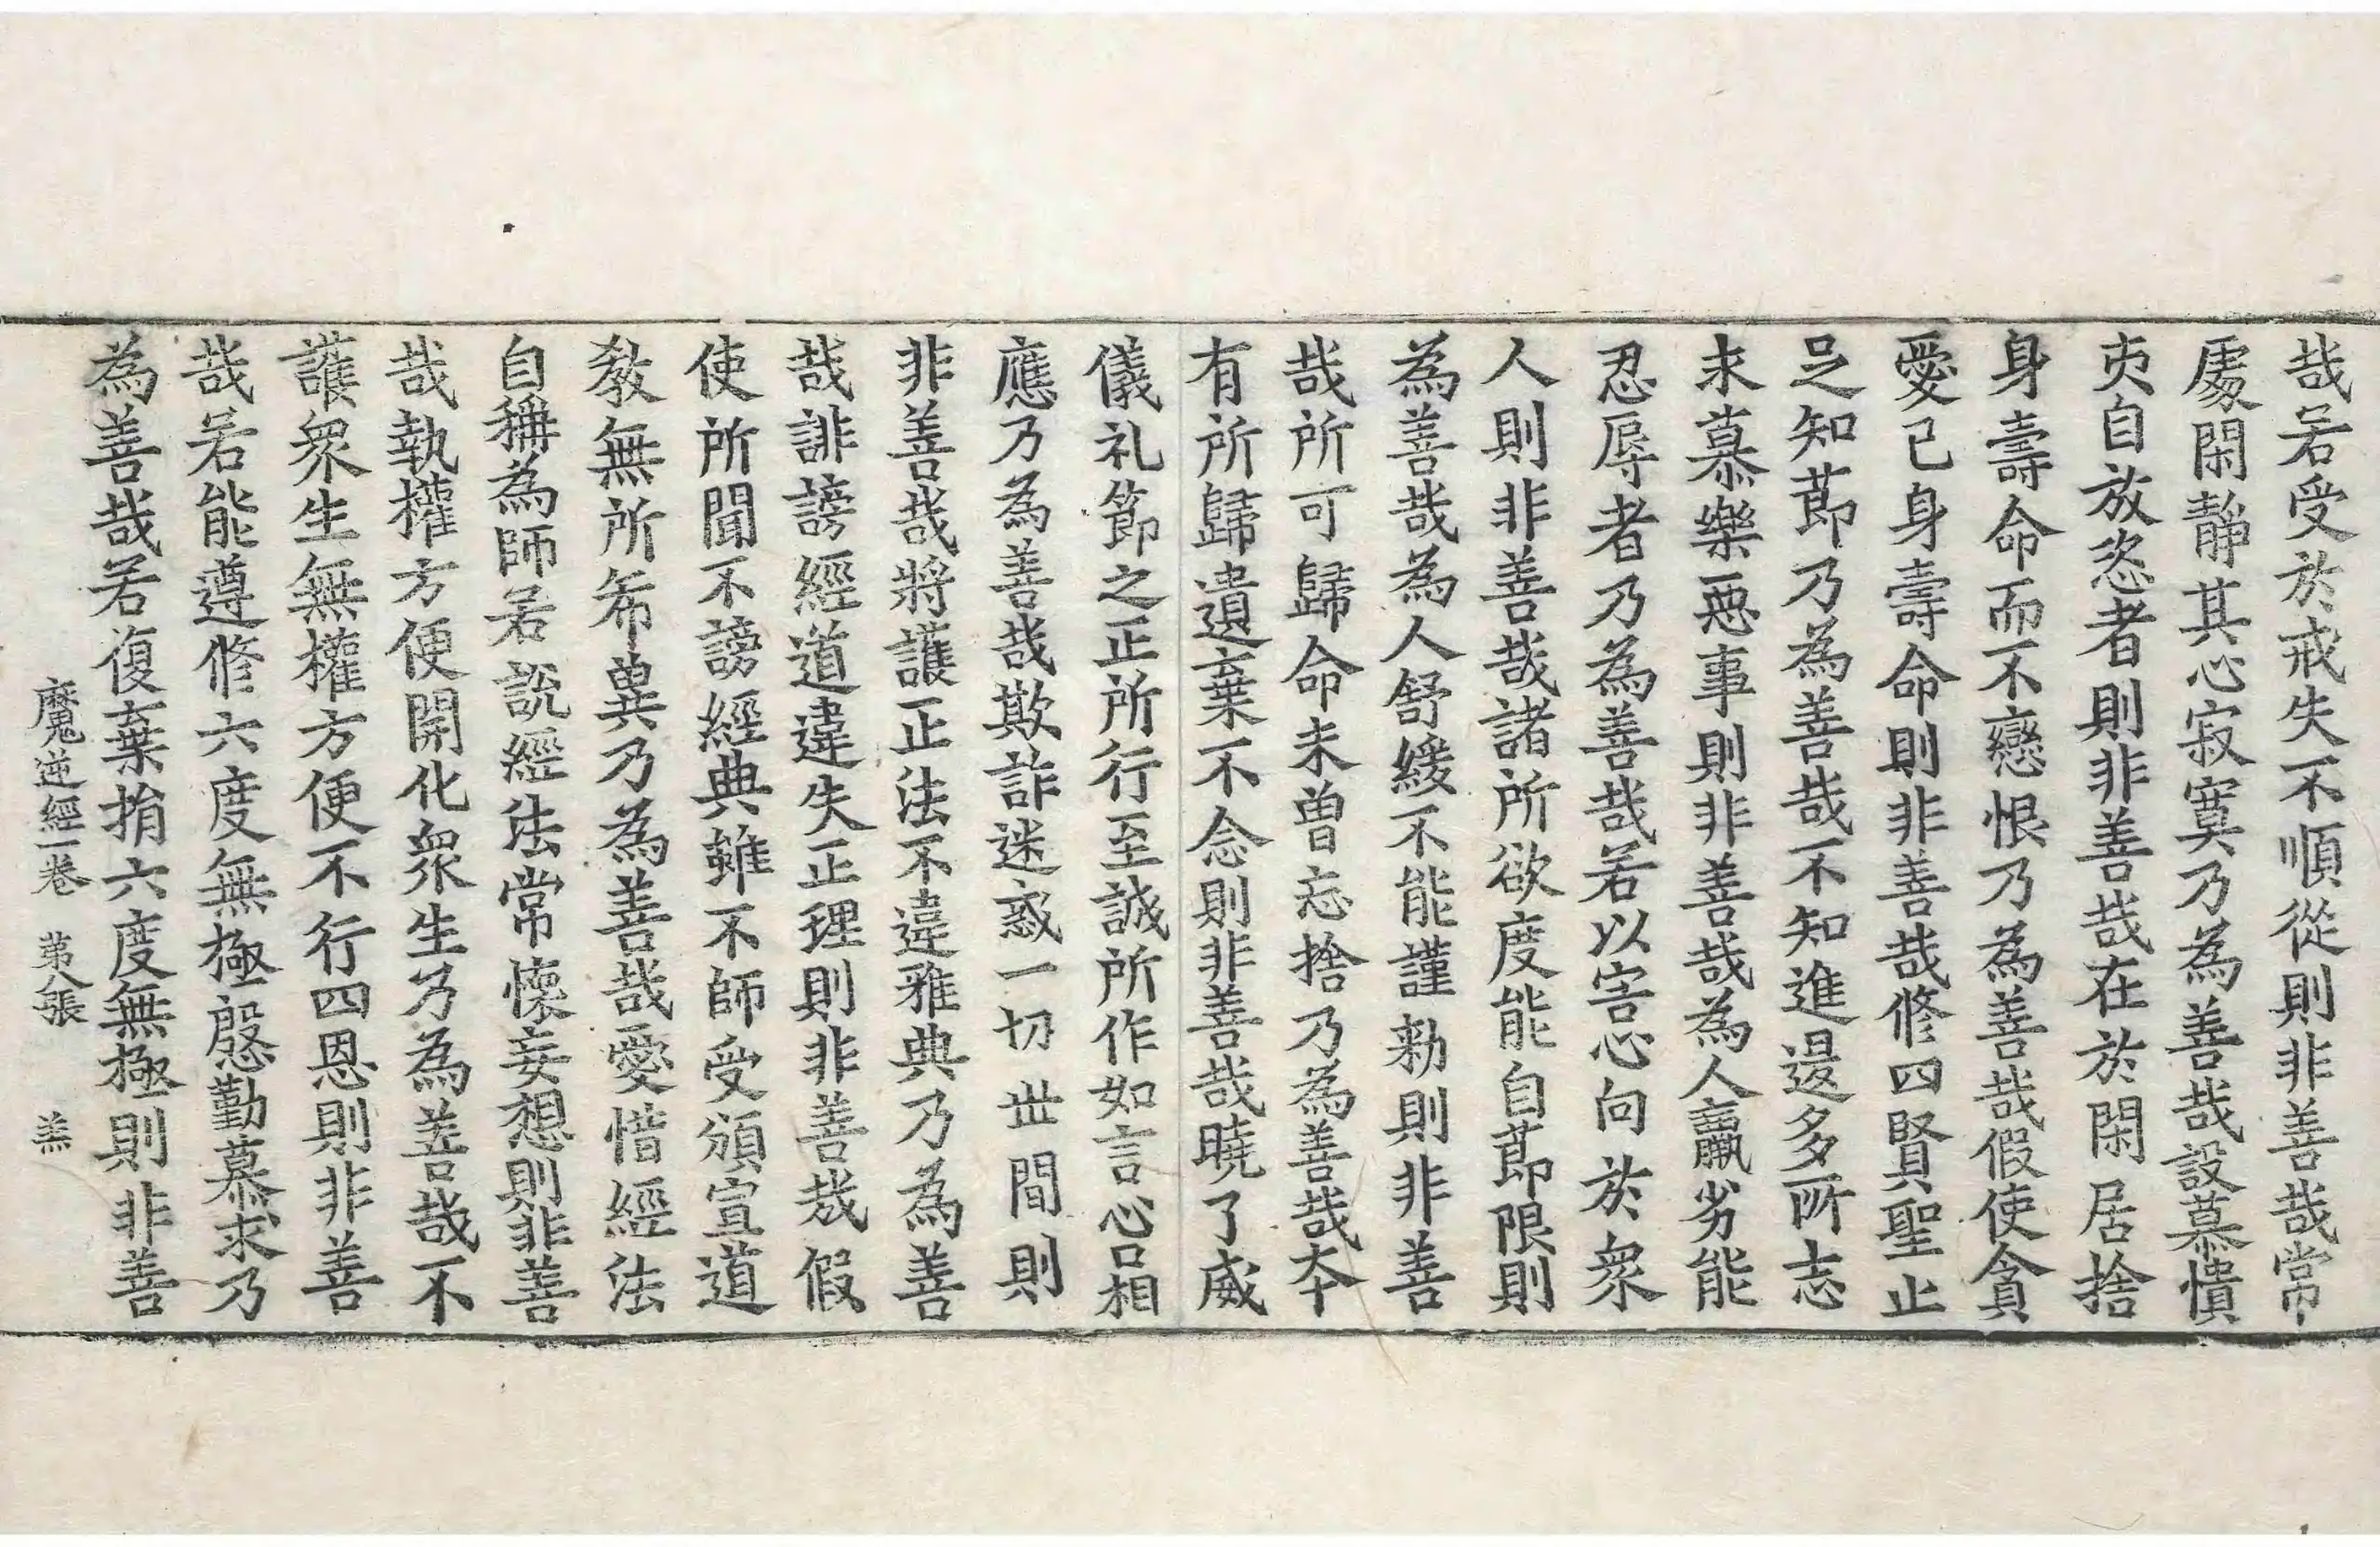 哉若受於戒失不順從則非善哉常
處閑靜其心寂寞乃為善哉設慕憒
吏自放恣者則非善哉在於閑居捨
身壽命而不戀恨乃為善哉假使貪
愛已身壽命則非善哉修四賢聖止
足知節乃為善哉不知進退多所志
求慕樂惡事則非善哉為人羸劣能
忍辱者乃為善哉若以害心向於衆
人則非善哉諸所欲度能自節限則
為善哉為人舒緩不能謹勑則非善
哉所可歸命未曽忘捨乃為善哉夲
有所歸遺棄不念則非善哉曉了威
儀礼節之正所行至誠所作如言心口相
應乃為善哉欺詐迷惑一切世間則
非善哉將護正法不違雅典乃為善
哉誹謗經道違失正理則非善哉假
使所聞不謗經典雖不師受頒宣道
教無所希兾乃為善哉愛惜經法
自稱為師若說經法常懷妄想則非善
哉執權方便開化衆生乃為善哉不
護衆生無權方便不行四恩則非善
哉若能遵修六度無極慇勤慕求乃
為善哉若復棄捐六度無極則非善
魔逆經一卷 苐八張 羔